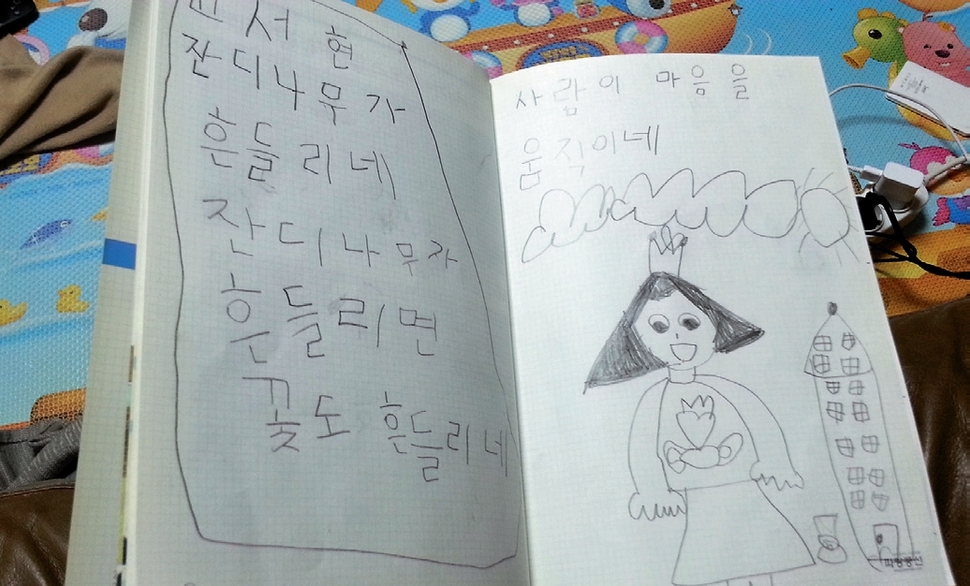 서현
잔디나무가
흔들리네
잔디나무가
흔들리면
꽃도 흔들리네
사람이 마음을
움직이네